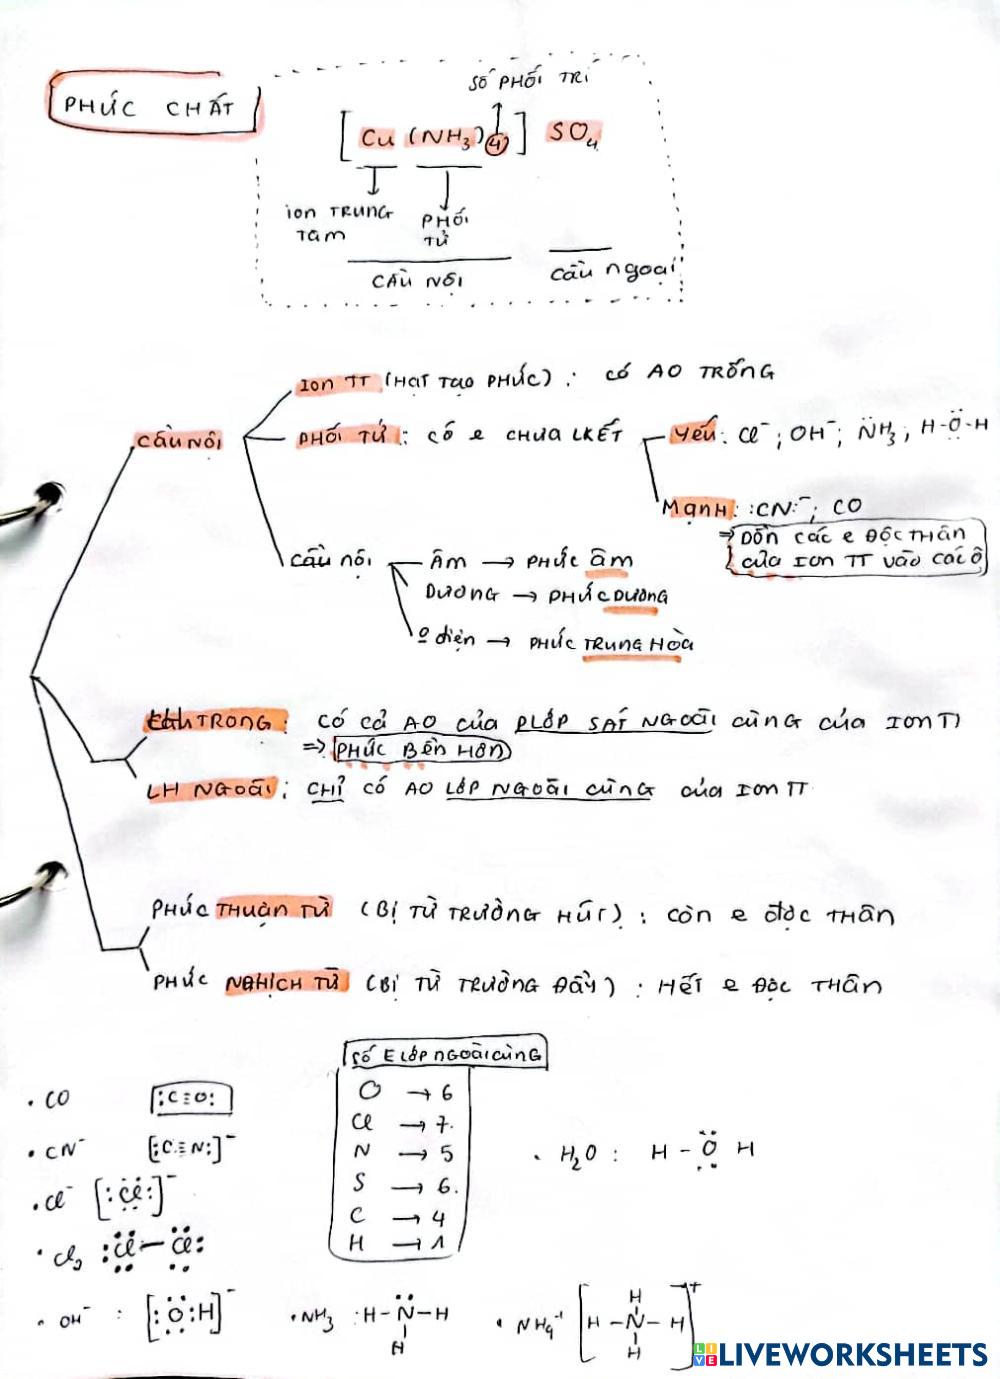 PHỨC CHẤT
SỐ PHỐI TRÍ
[Cu (NH3)4] SO4
ion TRUNG TÂM
PHỐI TỬ
CẦU NỘI
cầu ngoại
CẦU NỘI
Ion TT (HẠT TẠO PHỨC) : có AO TRỐNG
PHỐI TỬ : có e CHƯA LKẾT
Yếu : Cl⁻ ; OH⁻ ; N̈H3 ; H-Ö-H
MẠNH : :CN:⁻ ; CO
⇒ DỒN CÁC e ĐỘC THÂN
CỦA ION TT VÀO CÁC Ô
CẦU NỘI
ÂM → PHỨC ÂM
DƯƠNG → PHỨC DƯƠNG
0 điện → PHỨC TRUNG HÒA
LH TRONG : CÓ CẢ AO CỦA PLỚP SÁT NGOÀI CÙNG CỦA ION TT
⇒ PHỨC BỀN HƠN
LH NGOÀI : CHỈ CÓ AO LỚP NGOÀI CÙNG CỦA ION TT
PHỨC THUẬN TỪ (BỊ TỪ TRƯỜNG HÚT) : CÒN e độc THÂN
PHỨC NGHỊCH TỪ (BỊ TỪ TRƯỜNG ĐẨY) : HẾT e ĐỘC THÂN
SỐ E LỚP NGOÀI CÙNG
O → 6
Cl → 7
N → 5
S → 6
C → 4
H → 1
• CO :C≡O:
• CN⁻ [:C≡N:]⁻
• Cl⁻ [:Cl:]⁻
• Cl2 :Cl—Cl:
• H2O : H - O H
• OH⁻ : [:O:H]⁻
• NH3 : H-N-H
H
• NH4⁺ [H-N-H]⁺
H
H
LIVEWORKSHEETS